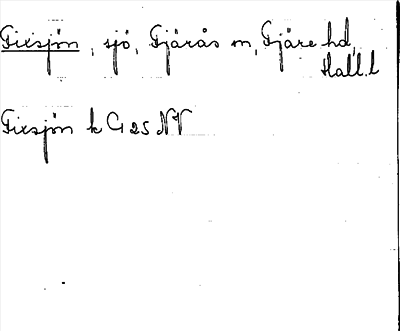 Fixsjön, sjö, Fjärås sn, Fjäre hd,
Hall. l
Fixsjön k G 25 NV